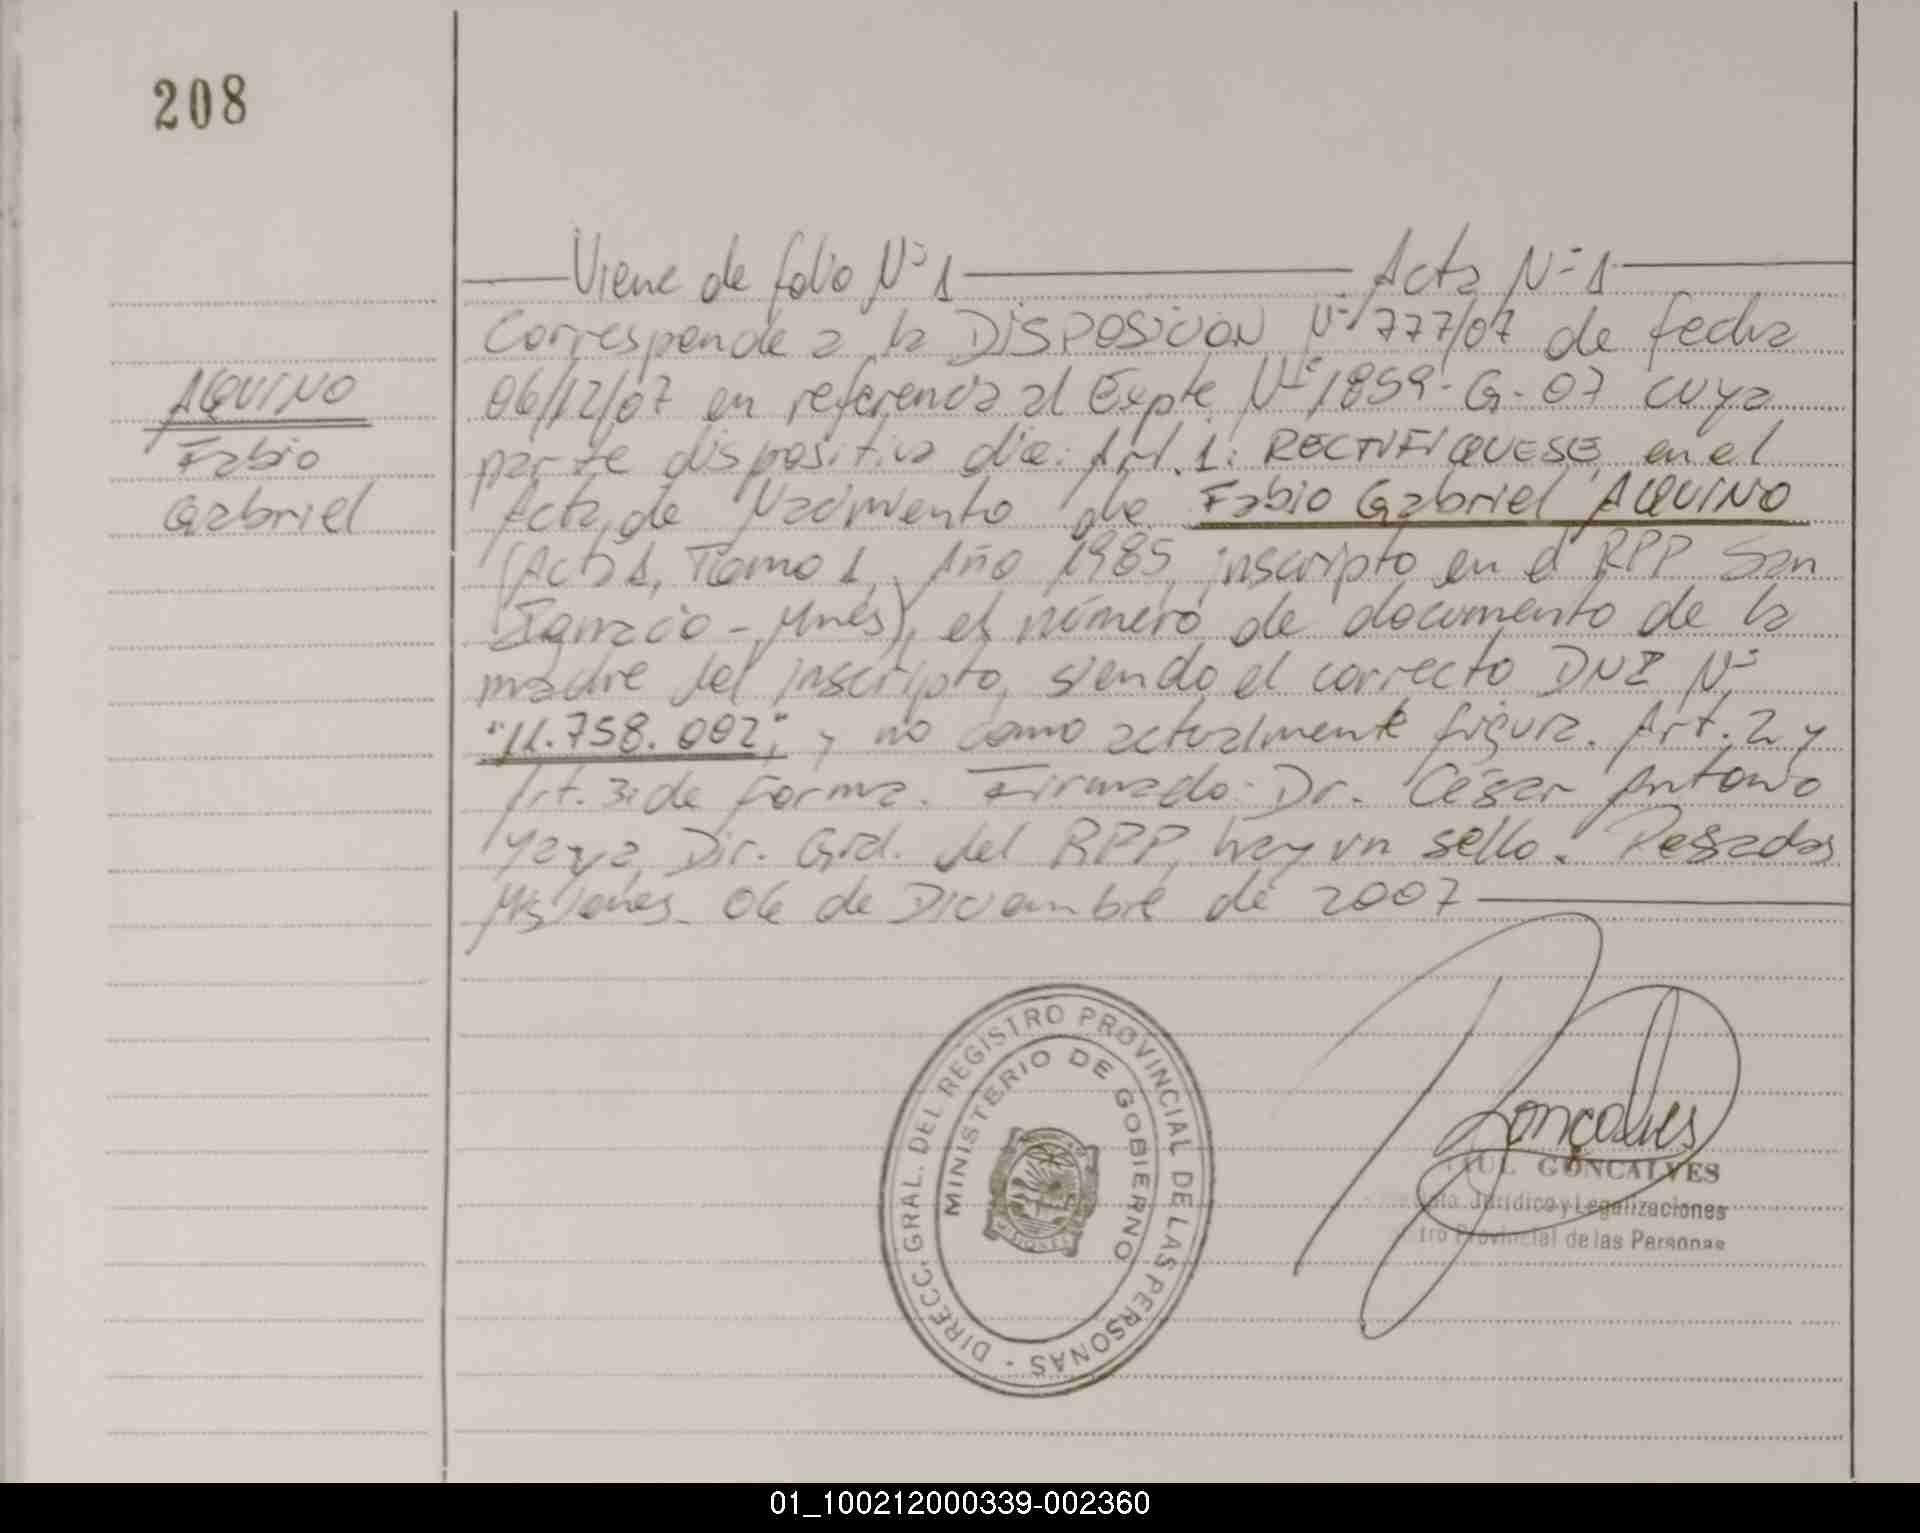 208
Viene de folio Nº 1 Acta Nº 1
Corresponde a la DISPOSICION Nº 777/07 de fecha
06/12/07 en referencia al Expte Nº 1859-G-07 cuya
parte dispositiva dice: Art. 1: RECTIFIQUESE en el
Acta de Nacimiento de Fabio Gabriel AQUINO
(Acta 1, Tomo 1, Año 1985, inscripto en el RPP San
Ignacio - Mnes), el número de documento de la
madre del inscripto, siendo el correcto DNI Nº
"11.758.002", y no como actualmente figura. Art. 2 y
Art. 3: de forma. Firmado: Dr. César Antonio
Yaya, Dir. Gral. del RPP, hay un sello. Posadas
Misiones. 06 de Diciembre de 2007
AQUINO
Fabio
Gabriel
DIRECC. GRAL. DEL REGISTRO PROVINCIAL DE LAS PERSONAS -
MINISTERIO DE GOBIERNO
Gonçalves
GONCALVES
Jurídico y Legalizaciones
Provincial de las Personas
01_100212000339-002360